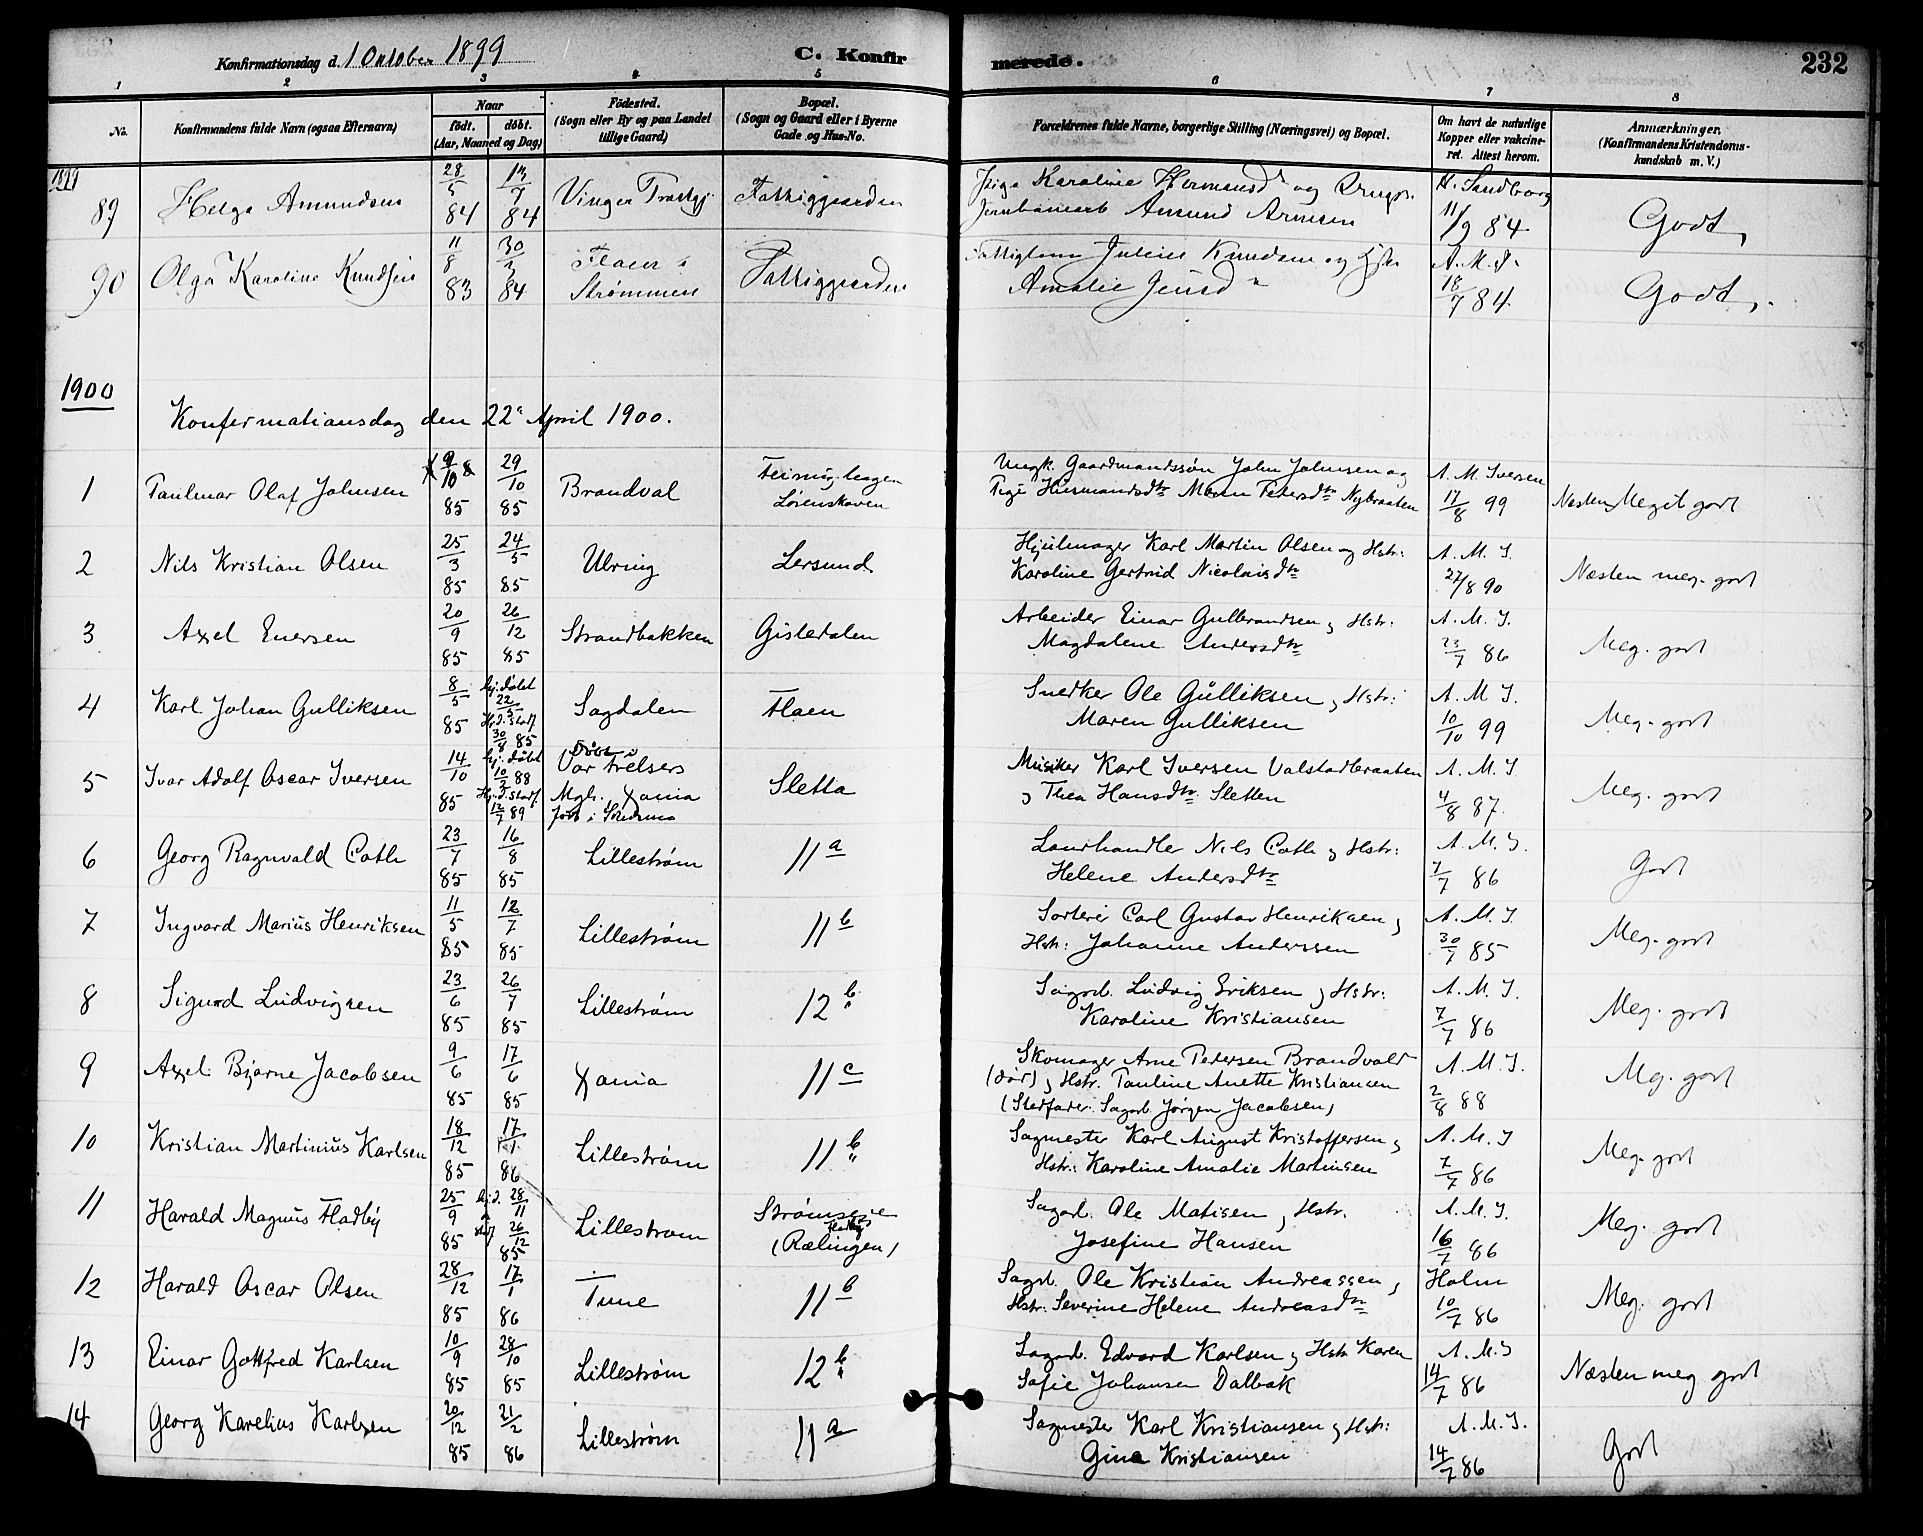 Konfirmationsdag d. 1 October 1899
C. Konfirmerede.
232
1 2 3 4 5 6 7 8
No.
Konfirmandens fulde Navn (ogsaa Efternavn)
Naar
født. døbt.
(Aar, Maaned og Dag)
Fødested.
(Sogn eller By og paa Landet
tillige Gaard)
Bopæl.
(Sogn og Gaard eller i Byerne
Gade og Hus-No.
Forældrenes fulde Navne, borgerlige Stilling (Næringsvei) og Bopæl.
Om havt de naturlige
Kopper eller vakcine-
ret. Attest herom.
Anmærkninger.
(Konfirmandens Kristendoms-
kundskab m. V.)
1899
89 Helga Amundsen 28/5 84 13/7 84 Vinger Fattiggaarden
Pige Karoline Hermansd og
Jernbanearb Amund Arnesen
N. Sandborg 11/9 84 Godt,
90 Olga Karoline Knudsen 11/8 83 30/3 84 Flaen i Strømmen Fattiggaarden
Fattiglem Julius Knudsen og Hstr
Amalie Jensd
A. M. I. 18/7 84 Godt,.
1900
Konfermationsdag den 22 April 1900.
1 Paulmar Olaf Johnsen 9/10 85 29/10 85 Brandval
Lørenskoven
Ungk. Gaardmandssøn John Johnsen og
Pige Husmandsdtr Maren Petersdtr Nybraaten
A. M. Iversen 17/8 99 Næsten Meget godt
2 Nils Kristian Olsen 25/3 85 24/5 85 Ulving Lersund
Hjulmager Karl Martin Olsen og Hstr:
Karoline Gertrud Nicolaisdtr
A. M. I. 27/8 90 Næsten meg. godt
3 Axel Enersen 20/9 85 26/12 85 Strandbakken Gistedalen
Arbeider Einar Gulbrandsen, Hstr:
Magdalene Andersdtr
A. M. I. 23/7 86 Meg. godt
4 Karl Johan Gulliksen 8/5 85 hj. døbt 22/5 Hj. d. stadf 30/8 85 Sagdalen Flaen
Snedker Ole Gulliksen, Hstr:
Maren Gulliksen
A. M I. 10/10 99 Meg. godt
5 Ivar Adolf Oscar Iversen 14/10 85 hj. døbt 10/2 88 Hj. d. stadf. 12/7 89 Døbt i
Vor Frelsers
Mgh. Xania
født i Skedsmo Sletta
Musiker Karl Iversen Valstadbraaten
, Thea Hansdtr Sletten
A. M. I. 4/8 87. Meg. godt
6 Georg Ragnvald Coth 23/7 85 16/8 85 Lillestrøm 11a
Landhandler Nils Coth, Hstr:
Helene Andersdtr
A. M. I. 7/7 86 Godt
7 Ingvard Marius Henriksen 11/5 85 12/7 85 Lillestrøm 11b
Sorterer Carl Gustav Henriksen,
Hstr: Johanne Anderssen
A. M. I. 30/7 85 Meg. godt
8 Sigurd Ludvigsen 23/6 85 26/7 85 Lillestrøm 12b
Sagarb. Ludvig Eriksen, Hstr:
Karoline Kristiansen
A. M. I. 7/7 86 Meg. godt
9 Axel Bjarne Jacobsen 9/6 85 17/6 85 Xania 11c
Skomager Arne Petersen Brandvold
(død), Hstr. Pauline Anette Kristiansen
(Stedfader. Sagarb. Jørgen Jacobsen)
A. M. I. 2/8 88 Meg. godt
10 Kristian Martinius Karlsen 18/12 85 17/1 86 Lillestrøm 11b
Sagmester Karl August Kristoffersen,
Hstr: Karoline Amalie Martinsen
A. M. I 7/7 86 Meg. godt
11 Harald Magnus Fladby 25/9 85 hj. d. 28/11 stadf 26/12 85 Lillestrøm
(Rælingen)
Sagarb. Ole Matisen, Hstr.
Josefine Hansen
A. M. I. 16/7 86 Meg. godt
12 Harald Oscar Olsen 28/12 85 17/1 86 Tune 11b
Sagarb. Ole Kristian Andreassen,
Hstr: Severine Helene Andreasdtr
Holm 10/7 86 Meg. godt
13 Einar Gottfred Karlsen 10/9 85 28/10 85 Lillestrøm 12b
Sagarb. Edvard Karlsen, Hstr Karen
Sofie Johansen Dalbak
A. M. I 14/7 86 Næsten meg godt
14 Georg Karelius Karlsen 20/12 85 21/2 86 Lillestrøm 11a
Sagmester Karl Kristiansen, Hstr:
Gina Kristiansen
A. M. I. 14/7 86 Godt